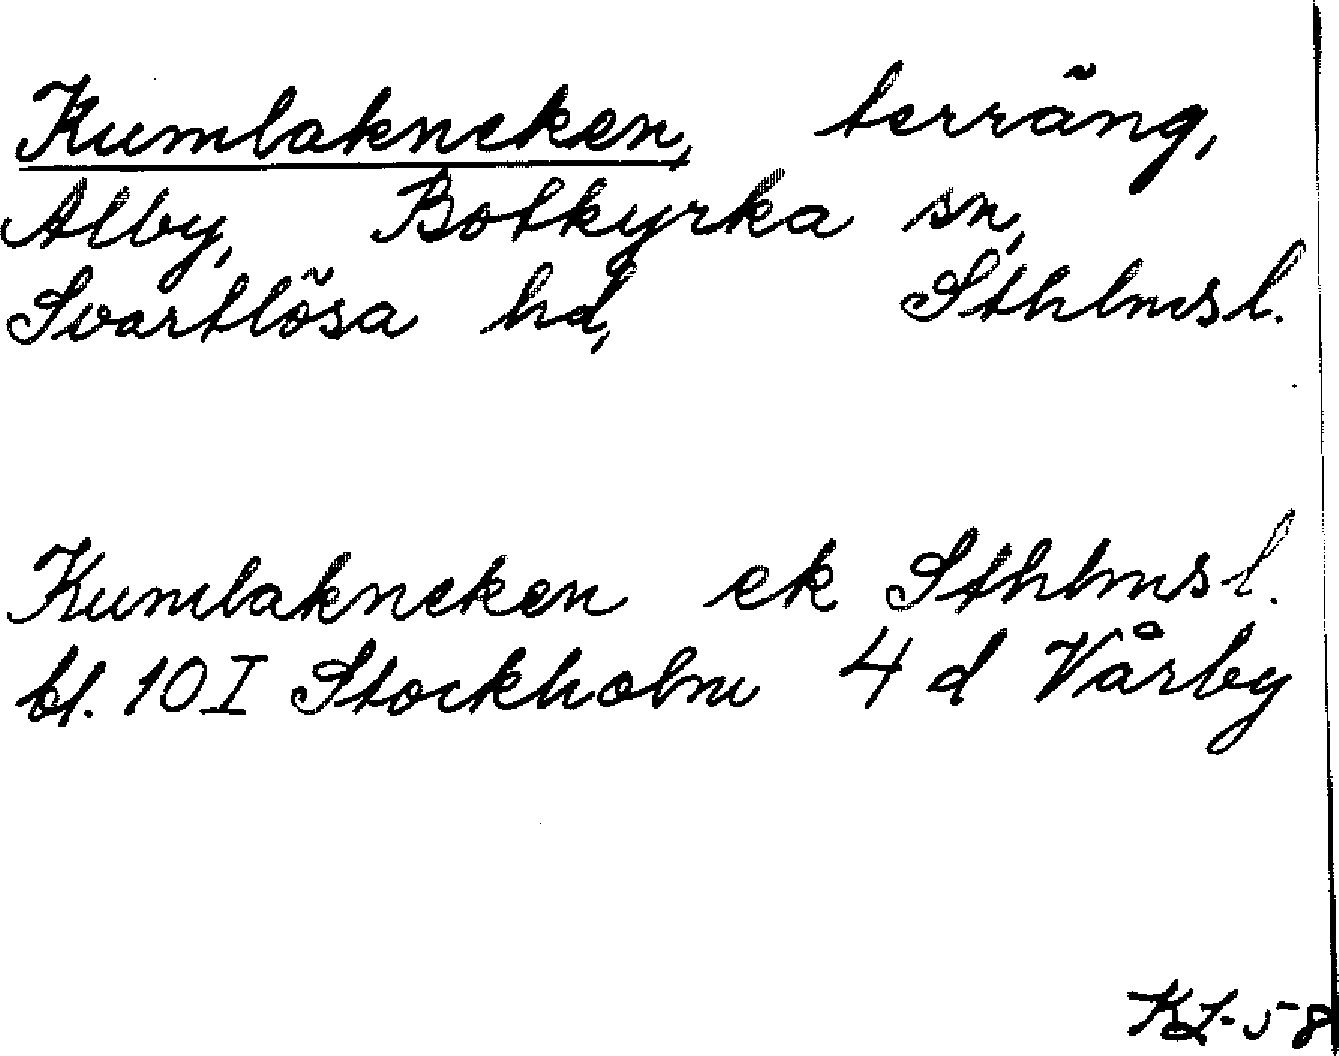 Kumlakneken, terräng,
Alby, Botkyrka sn,
Svartlösa hd, Sthlmsl.
Kumlakneken ek Sthlmsl.
bl. 10I Stockholm 4 d Vårby
KL-58